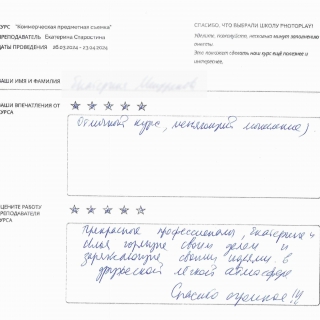 КУРС "Коммерческая предметная съемка"
ПРЕПОДАВАТЕЛЬ Екатерина Старостина
ДАТЫ ПРОВЕДЕНИЯ 26.03.2024 - 23.04.2024
СПАСИБО, ЧТО ВЫБРАЛИ ШКОЛУ PHOTOPLAY!
Уделите, пожалуйста, несколько минут заполнению анкеты
Это поможет сделать наш курс ещё полезнее и интереснее.
ВАШИ ИМЯ И ФАМИЛИЯ
Екатерина
ВАШИ ВПЕЧАТЛЕНИЯ ОТ КУРСА
Отличный курс, меняющий мышление).
ОЦЕНИТЕ РАБОТУ ПРЕПОДАВАТЕЛЯ КУРСА
Прекрасные профессионалы, Екатерина и
горящие своим делом и
заряжающие своими идеями в
дружеской легкой атмосфере
Спасибо огромное!!!